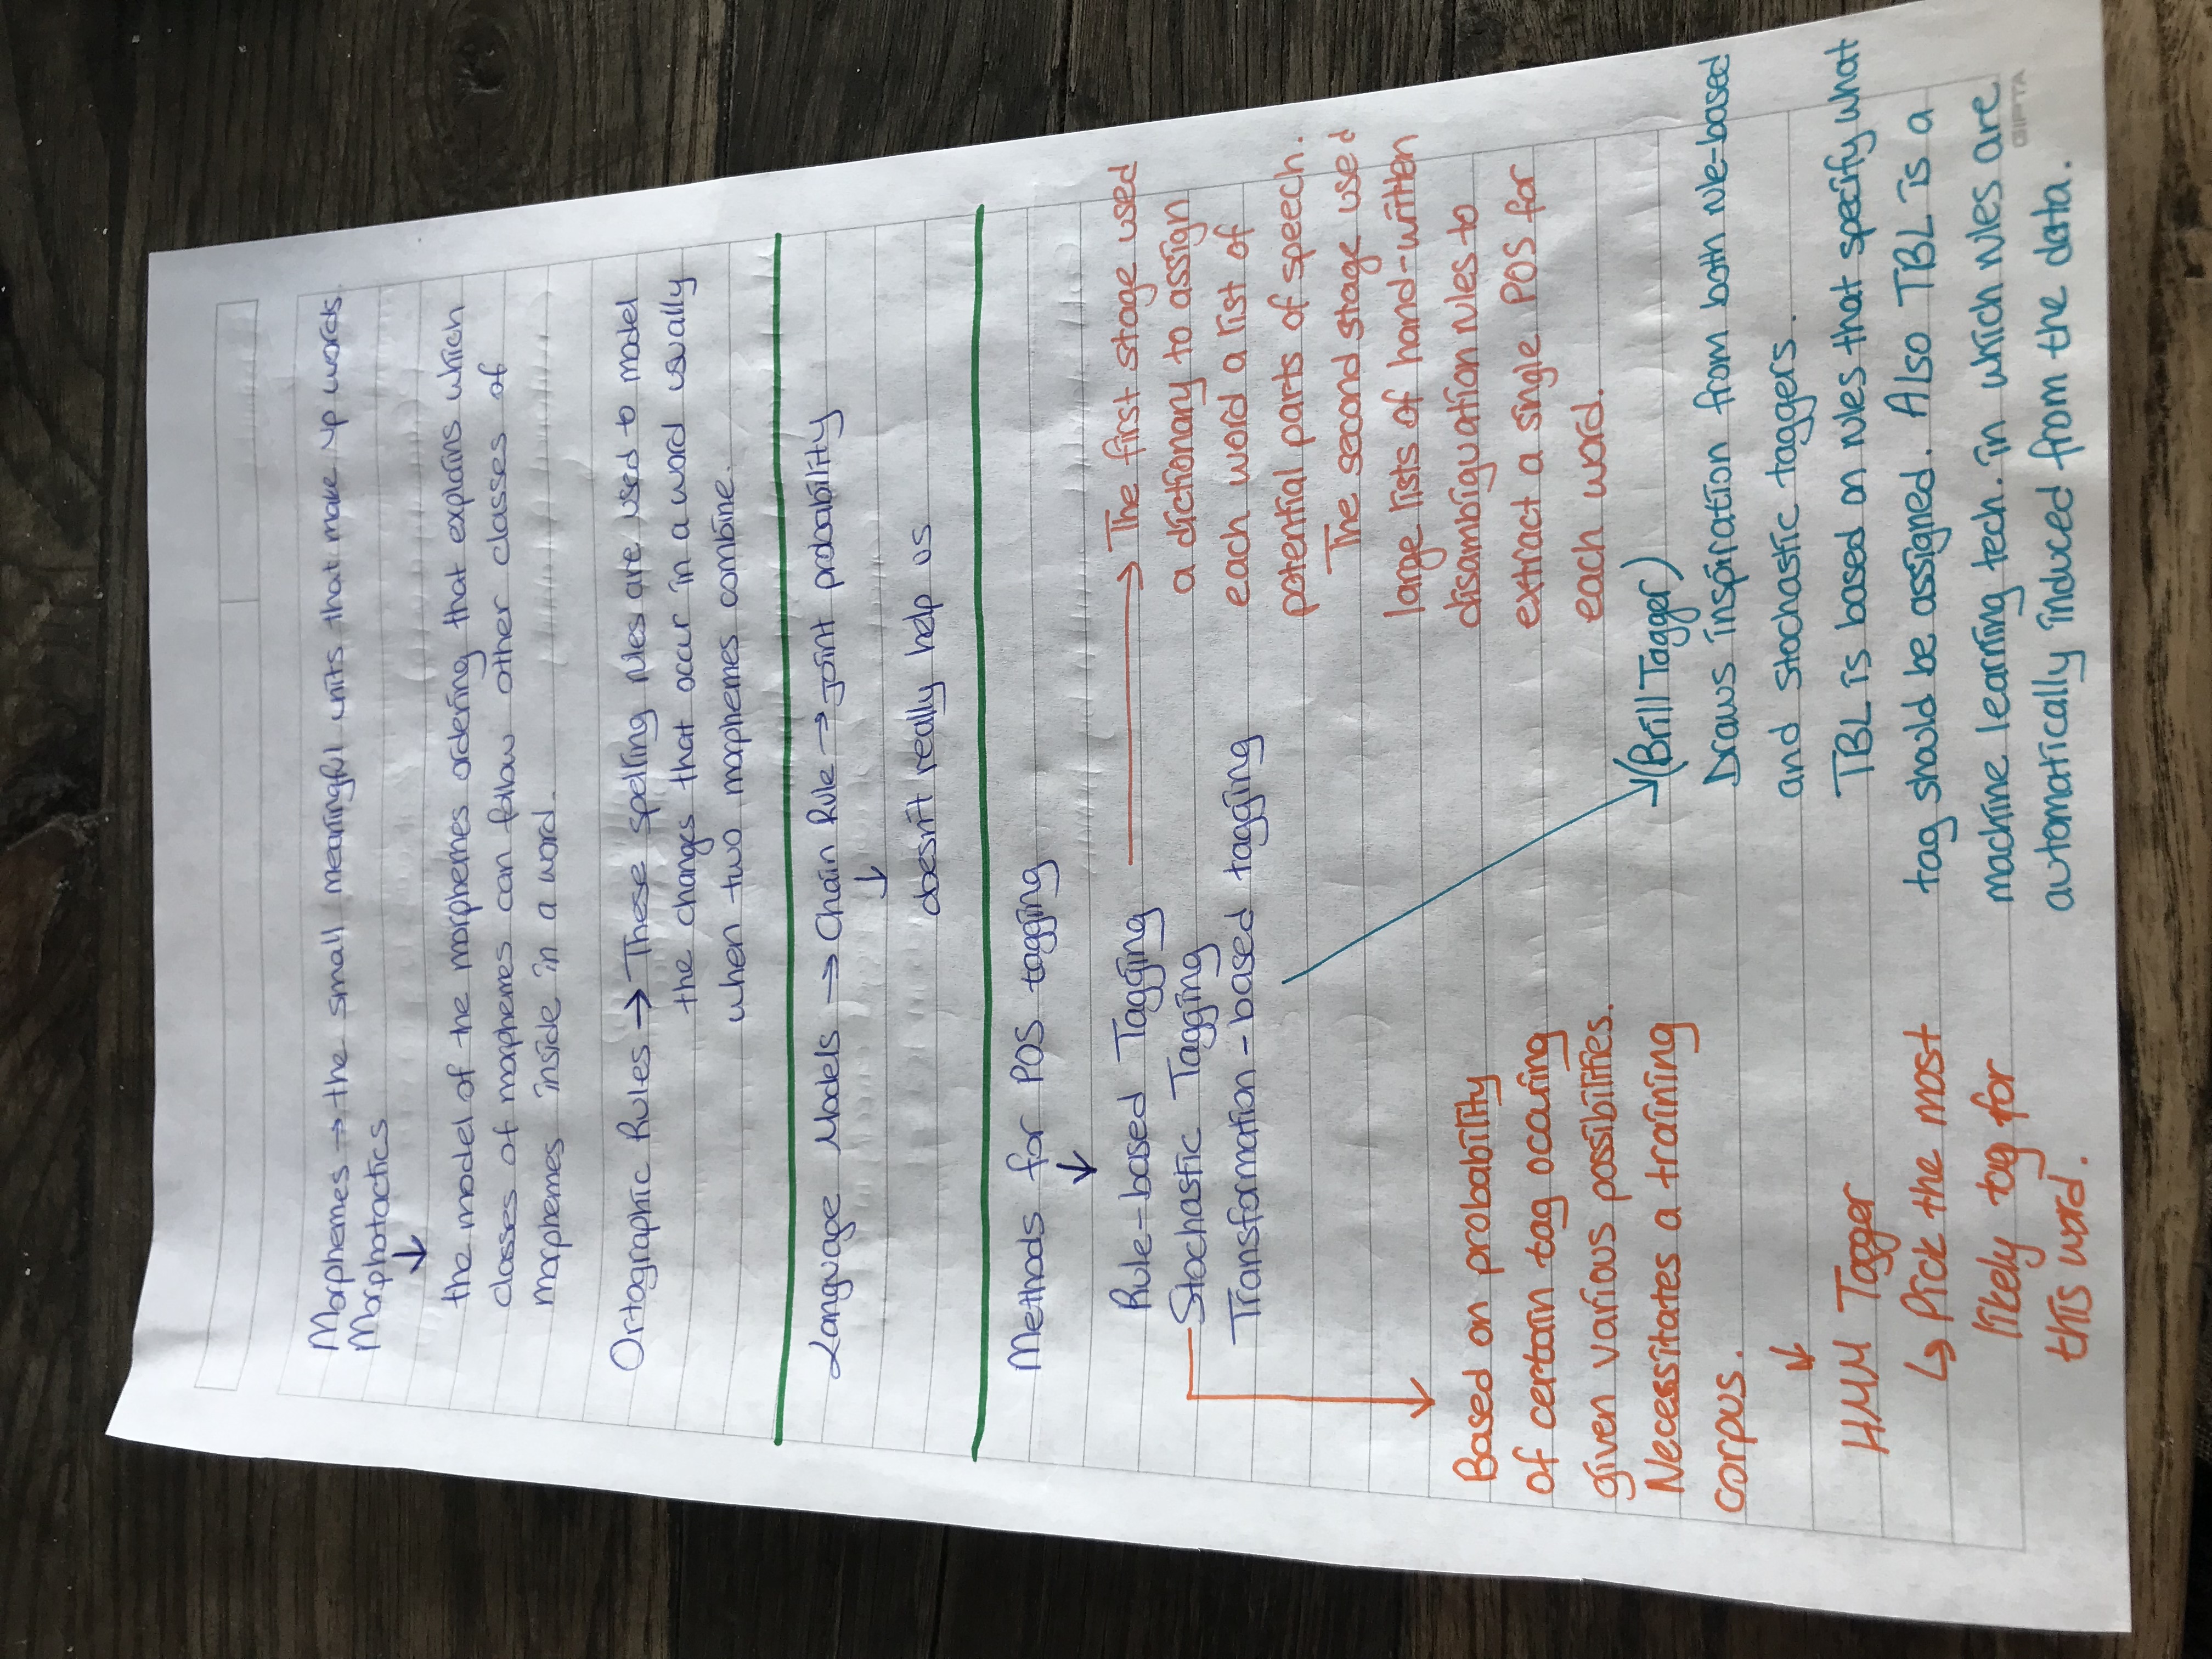 Morphemes → the small meaningful units that make up words.
Morphotactics
↓
the model of the morphemes ordering that explains which
classes of morphemes can follow other classes of
morphemes inside in a word.
Ortographic Rules → These spelling rules are used to model
the changes that occur in a word usually
when two morphemes combine.
Language Models → Chain Rule → joint probability
↓
doesn't really help us
Methods for POS tagging
↓
Rule-based Tagging
Stochastic Tagging
Transformation-based tagging
→ The first stage used
a dictionary to assign
each word a list of
potential parts of speech.
The second stage used
large lists of hand-written
disambiguation rules to
extract a single POS for
each word.
Based on probability
of certain tag occuring
given various possibilities.
Necessitates a training
corpus.
↓
HMM Tagger
↳ Pick the most
likely tag for
this word.
(Brill Tagger)
Draws inspiration from both rule-based
and stochastic taggers.
TBL is based on rules that specify what
tag should be assigned. Also TBL is a
machine learning tech. in which rules are
automatically induced from the data.
GIPTA